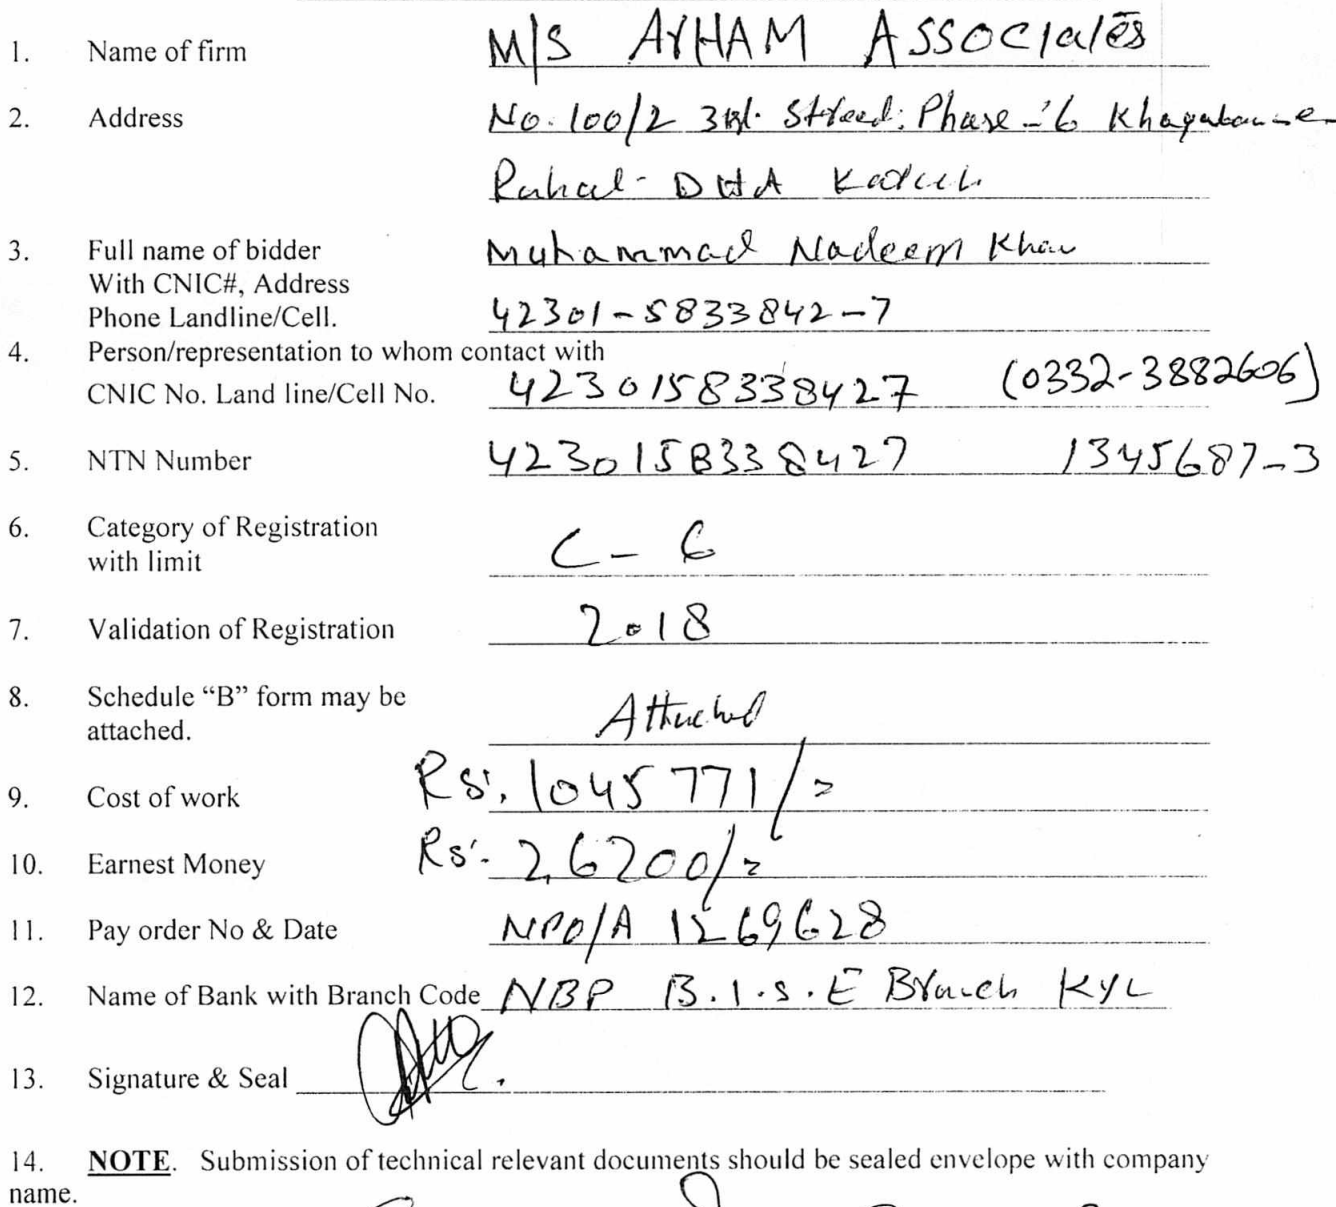 1. Name of firm M/S ArHAM Associates
2. Address No. 100/2 3rd. Street: Phase - 6
Rahat - DHA
3. Full name of bidder Muhammad Nadeem Khan
With CNIC#, Address
Phone Landline/Cell. 42301-5833842-7
4. Person/representation to whom contact with
CNIC No. Land line/Cell No. 4230158338427 (0332-3882606)
5. NTN Number 4230158338427 1345687-3
6. Category of Registration C - 6
with limit
7. Validation of Registration 2018
8. Schedule “B” form may be Attached
attached.
9. Cost of work Rs: 1045771/=
10. Earnest Money Rs: 26200/=
11. Pay order No & Date NPO/A 1269628
12. Name of Bank with Branch Code NBP B.I.S.E Branch
13. Signature & Seal
14. NOTE. Submission of technical relevant documents should be sealed envelope with company
name.